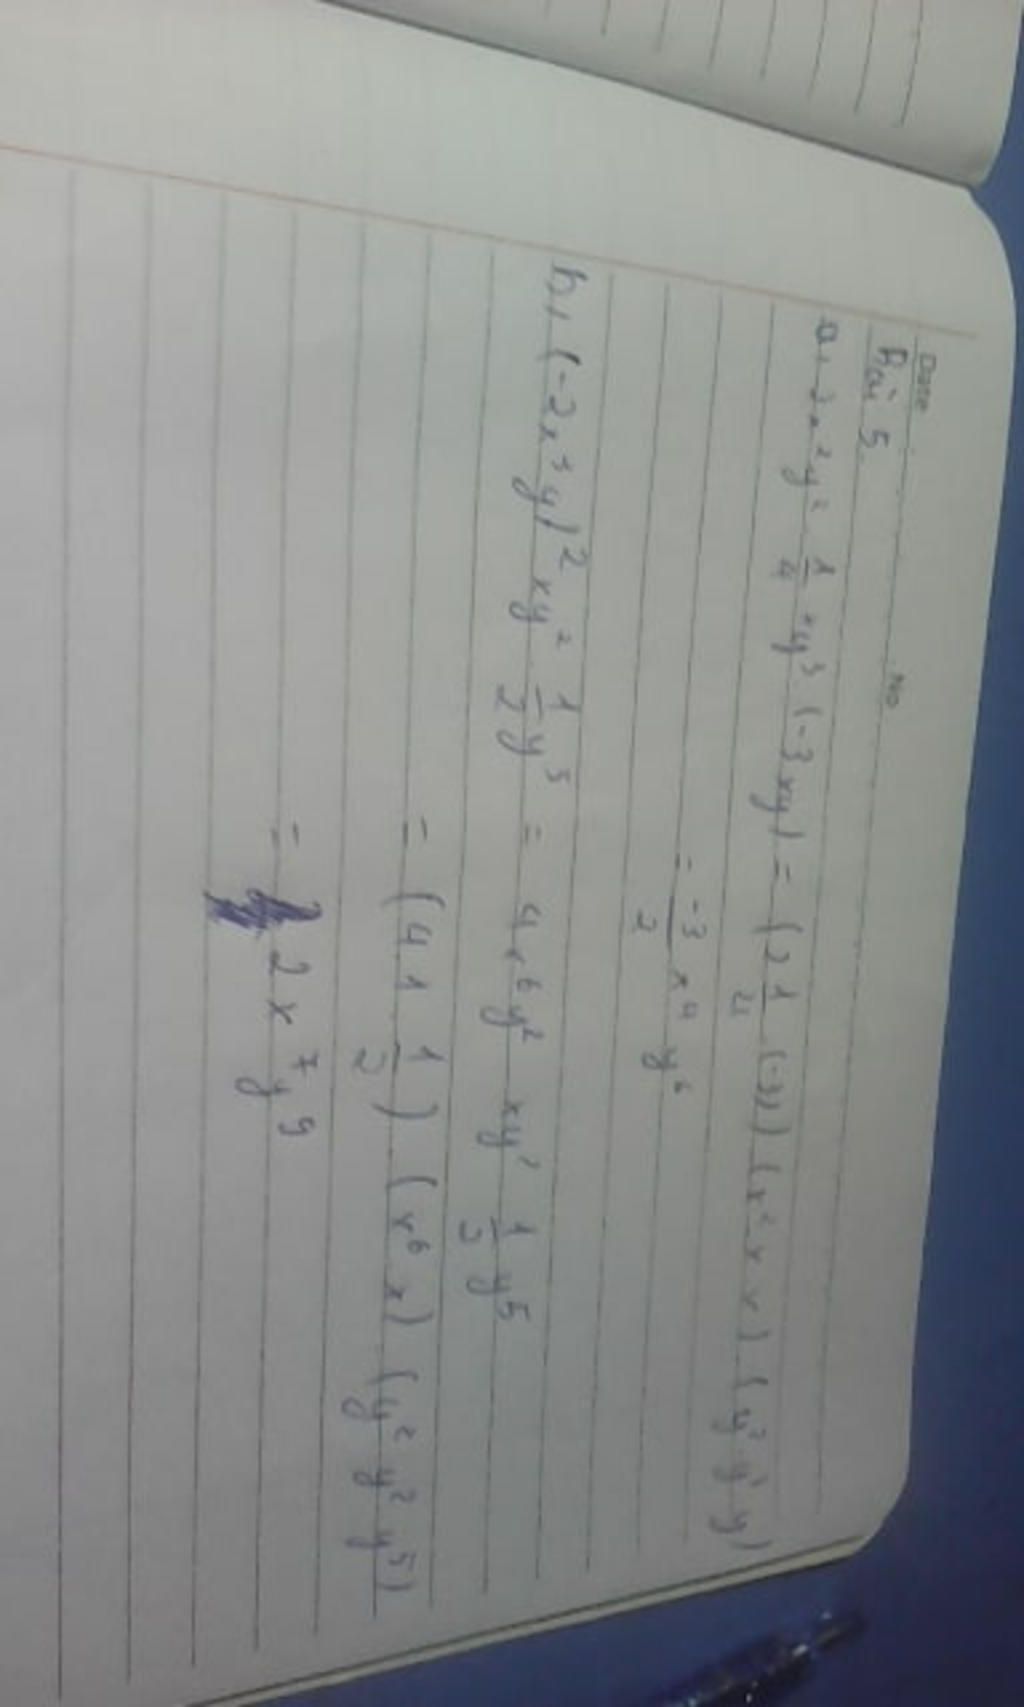 Date No
Bài 5
a, 2x²y² 1/4 xy³ (-3xy) = (2 1/4 (-3)) (x² x x) (y² y³ y)
= -3/2 x⁴ y⁶
b, (-2x³y)² xy² 1/2 y⁵ = 4x⁶y² xy² 1/2 y⁵
= (4 1 1/2) (x⁶ x) (y² y² y⁵)
= 2x⁷y⁹